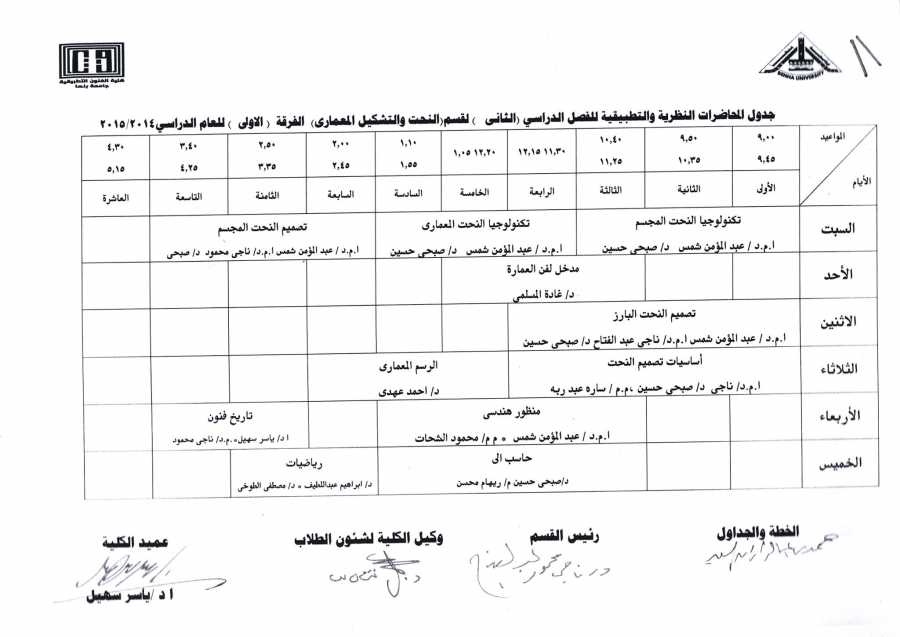 كلية الفنون التطبيقية
جامعة بنها
BENHA UNIVERSITY
جدول المحاضرات النظرية والتطبيقية للفصل الدراسي (الثانى ) لقسم(النحت والتشكيل المعمارى) الفرقة (الاولى ) للعام الدراسي٢٠١٥/٢٠١٤
المواعيد
٩,٠٠ ٩,٥٠ ١٠,٤٠ ١١,٣٠ ١٢,١٥ ١٢,٢٠ ١,٠٥ ١,١٠ ٢,٠٠ ٢,٥٠ ٣,٤٠ ٤,٣٠
٩,٤٥ ١٠,٣٥ ١١,٢٥ ١,٥٥ ٢,٤٥ ٣,٣٥ ٤,٢٥ ٥,١٥
الأيام
الأولى الثانية الثالثة الرابعة الخامسة السادسة السابعة الثامنة التاسعة العاشرة
السبت
تكنولوجيا النحت المجسم
ا.م.د / عبد المؤمن شمس د/ صبحى حسين
تكنولوجيا النحت المعمارى
ا.م.د / عبد المؤمن شمس د/ صبحى حسين
تصميم النحت المجسم
ا.م.د / عبد المؤمن شمس ا.م.د/ ناجى محمود د/ صبحى
الأحد
مدخل لفن العمارة
د/ غادة المسلمى
الاثنين
تصميم النحت البارز
ا.م.د / عبد المؤمن شمس ا.م.د/ ناجى عبد الفتاح د/ صبحى حسين
الثلاثاء
أساسيات تصميم النحت
ا.م.د/ ناجى د/ صبحى حسين ،م.م / ساره عبد ربه
الرسم المعمارى
د/ احمد عهدى
الأربعاء
منظور هندسى
ا.م.د / عبد المؤمن شمس * م م/ محمود الشحات
تاريخ فنون
ا د/ ياسر سهيل*ا.م.د/ ناجى محمود
الخميس
حاسب الى
د/صبحى حسين م/ ريهام محسن
رياضيات
د/ ابراهيم عبداللطيف * د/ مصطفى الطوخى
الخطة والجداول
رئيس القسم
وكيل الكلية لشئون الطلاب
عميد الكلية
ا د /ياسر سهيل